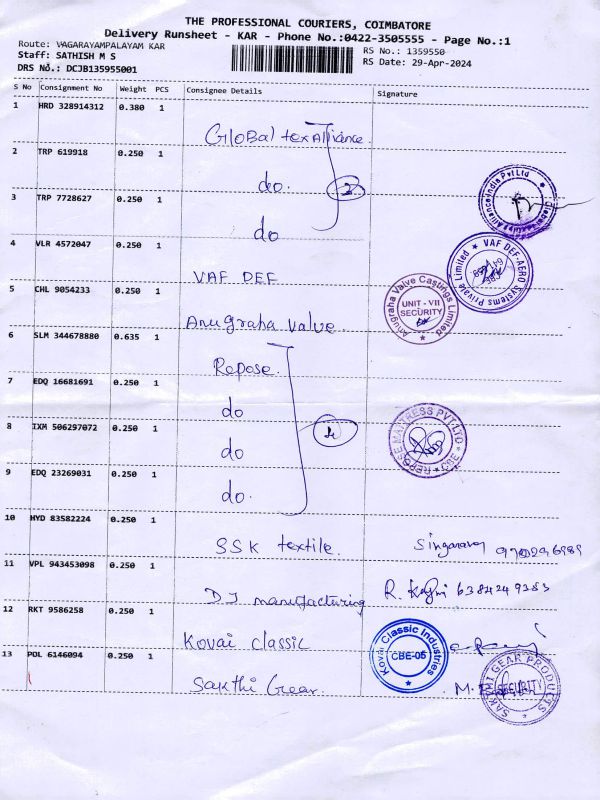 THE PROFESSIONAL COURIERS, COIMBATORE
Delivery Runsheet - KAR - Phone No.:0422-3505555 - Page No.:1
Route: VAGARAYAMPALAYAM KAR
RS No.: 1359550
Staff: SATHISH M S
RS Date: 29-Apr-2024
DRS No.: DCJB135955001
S No Consignment No Weight PCS Consignee Details Signature
1 HRD 328914312 0.380 1 Global texAlliance
2 TRP 619918 0.250 1 do. 3
3 TRP 7728627 0.250 1 do
Alliance India Pvt Ltd
4 VLR 4572047 0.250 1 VAF DEF
VAF DEF-AERO Systems Private Limited
5 CHL 9054233 0.250 1 Anugraha value
Anugraha Valve Castings Limited
UNIT - VII
SECURITY
6 SLM 344678880 0.635 1 Repose
7 EDQ 16681691 0.250 1 do
8 IXM 506297072 0.250 1 do 4
REPOSE MATTRESS PVT LTD
9 EDQ 23269031 0.250 1 do.
10 HYD 83582224 0.250 1 SSK textile.
11 VPL 943453098 0.250 1 DJ manufacturing R.
12 RKT 9586258 1 Kovai classic
Kovai Classic Industries
CBE-05
13 POL 6146094 0.250 1 Sakthi Gear. M.
SAKTHI GEAR PRODUCTS
SECURITY